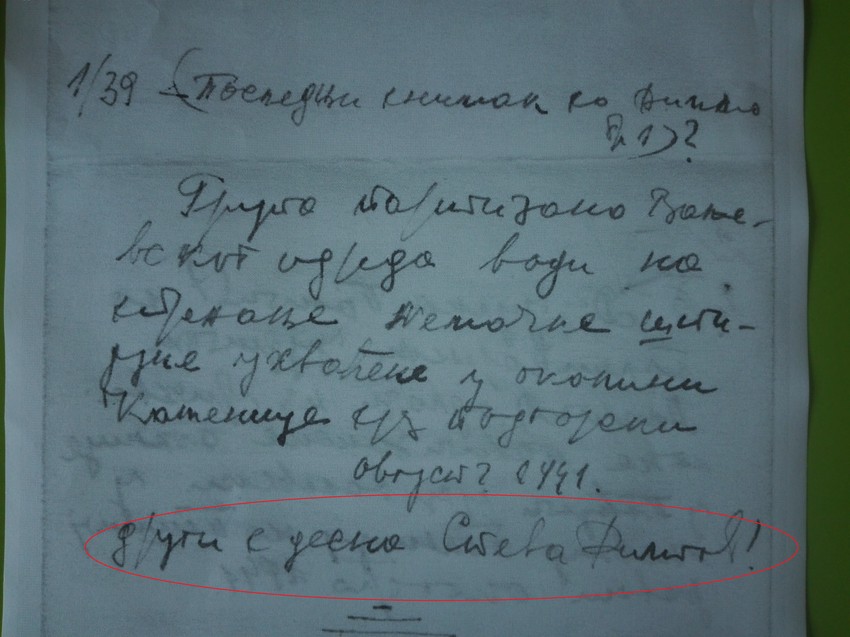 1/39 - (Последњи снимак ко
бр. 1)?
Група партизана Ваље-
вског одреда води на
стрељање немачке шпи-
јуне ухваћене у околини
Каменице крз подгорски
август? 1941.
други с десна Стева Филиповић!